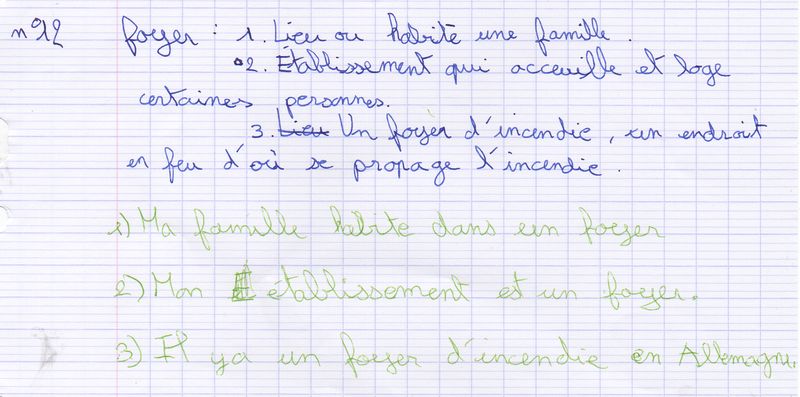 n°12 foyer : 1. Lieu ou habite une famille.
2. Établissement qui acceuille et loge
certaines personnes.
3. Lieu Un foyer d'incendie, un endroit
en feu d'où se propage l'incendie.
1) Ma famille habite dans un foyer
2) Mon établissement est un foyer.
3) Il ya un foyer d'incendie en Allemagne.